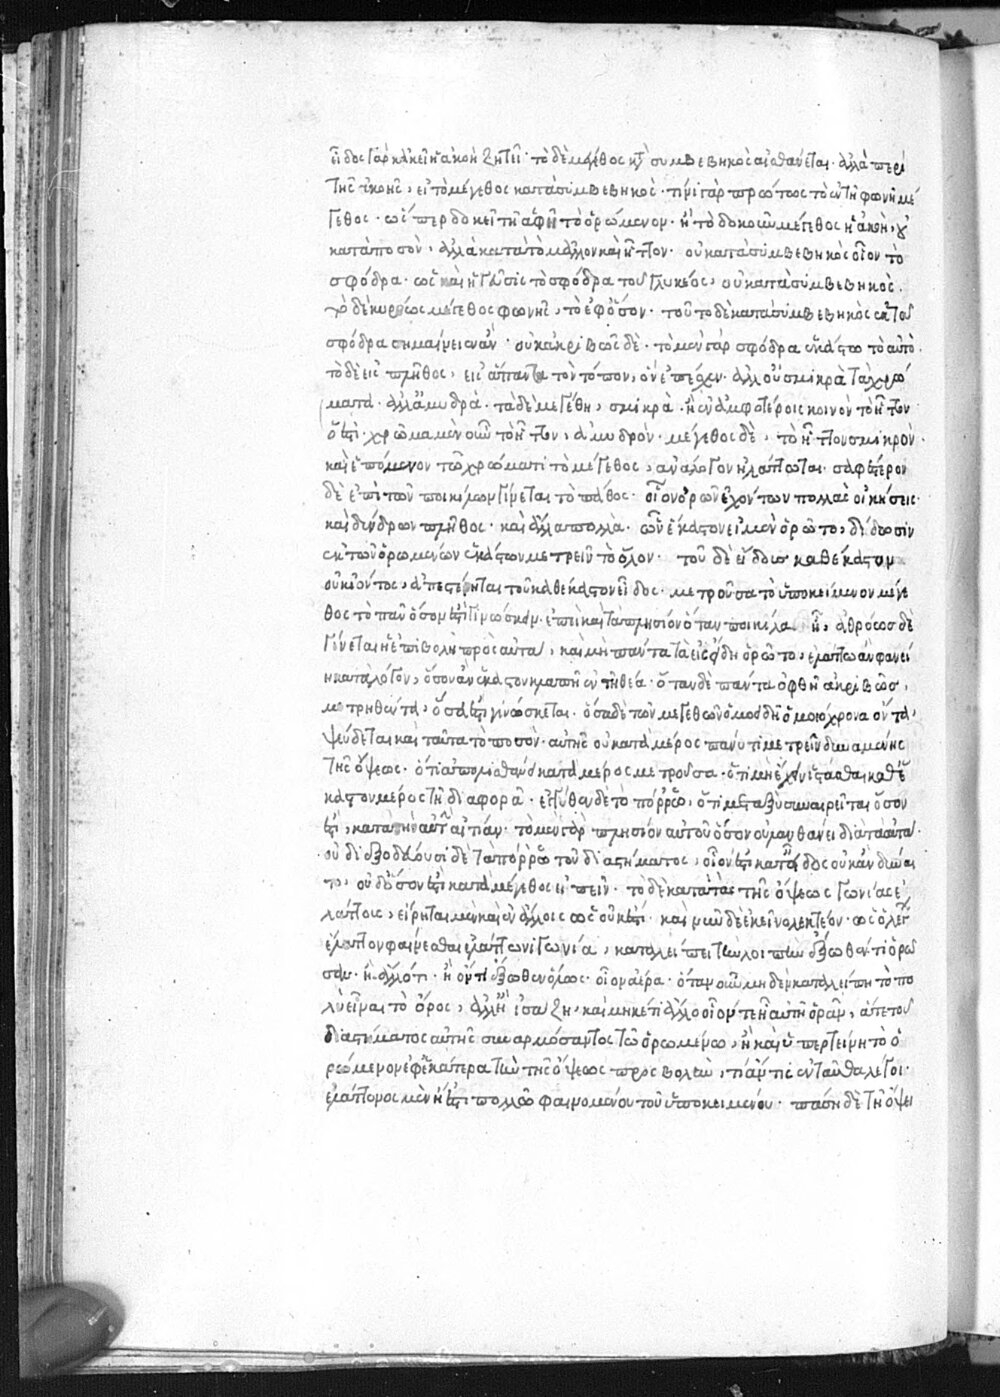 εἶδος γὰρ κἀκεῖ ἡ ἀκοὴ ζητεῖ· τὸ δὲ μέγεθος κατὰ συμβεβηκὸς αἰσθάνεται· ἀλλὰ περὶ
τῆς ἀκοῆς, εἰ τὸ μέγεθος κατὰ συμβεβηκὸς· τίνι γὰρ πρώτως τὸ ἐν τῇ φωνῇ μέ
γεθος· ὥσπερ δοκεῖ τῇ ἁφῇ τὸ ὁρώμενον· ἢ τὸ δοκοῦν μέγεθος ἡ ἀκοὴ, οὐ
κατὰ ποσὸν, ἀλλὰ κατὰ τὸ μᾶλλον καὶ ἧττον· οὐ κατὰ συμβεβηκὸς οἷον τὸ
σφόδρα· ὡς καὶ ἡ γεῦσις τὸ σφόδρα τοῦ γλυκέος, οὐ κατὰ συμβεβηκὸς·
τὸ δὲ κυρίως μέγεθος φωνῆς, τὸ ἐφ' ὅσον· τοῦτο δὲ κατὰ συμβεβηκὸς ἐκ τοῦ
σφόδρα σημαίνειεν ἂν· οὐκ ἀκριβῶς δὲ· τὸ μὲν γὰρ σφόδρα ἑκάστω τὸ αὐτὸ·
τὸ δὲ εἰς πλῆθος, εἰς ἅπαντα τὸν τόπον, ὃν ἐπέσχεν· ἀλλ' οὐ σμικρὰ τὰ χρώ
ματα· ἀλλ' ἀμυδρὰ· τὰ δὲ μεγέθη, σμικρὰ· ἢ ἐν ἀμφοτέροις κοινὸν τὸ ἧττον
ὅ ἐστι· χρῶμα μὲν οὖν τὸ ἧττον, ἀμυδρόν· μέγεθος δὲ, τὸ ἧττον σμικρὸν·
καὶ ἑπόμενον τῷ χρώματι τὸ μέγεθος, ἀνάλογον ἠλάττωται· σαφέστερον
δὲ ἐπὶ τῶν ποικίλων γίνεται τὸ πάθος· οἷον ὀρῶν ἐχόντων πολλὰς οἰκήσεις
καὶ δένδρων πλῆθος· καὶ ἄλλα πολλὰ· ὧν ἕκαστον εἰ μὲν ὁρῶτο, δίδωσιν
ἐκ τῶν ὁρωμένων ἑκάστων μετρεῖν τὸ ὅλον· τοῦ δὲ εἴδους καθέκαστον
οὐκ ἰόντος, ἀπεστέρηται τοῦ καθέκαστον εἶδος· μετροῦσα τὸ ὑποκείμενον μέγε
θος τὸ πᾶν ὅσον ἐστὶ γινώσκειν· ἐπεὶ καὶ τὰ πλησίον ὅταν ποικίλα ᾖ, ἀθρόως δὲ
γίνεται ἡ ἐπιβολὴ πρὸς αὐτά, καὶ μὴ πάντα τὰ εἴδη ὁρῶτο, ἐλάττω ἂν φανεί
η κατὰ λόγον, ὅσον ἂν ἕκαστον κλαπῇ ἐν τῇ θέα· ὅταν δὲ πάντα ὀφθῇ ἀκριβῶς,
μετρηθέντα, ὅσα ἐστὶ γινώσκεται· ὅσα δὲ τῶν μεγεθῶν ὁμοειδῆ ὁμοιόχροα ὄντα,
ψεύδεται καὶ ταῦτα τὸ ποσὸν· αὐτῆς οὐ κατὰ μέρος πάνυ τι μετρεῖν δυναμένης
τῆς ὄψεως· ὅτι ἀπολισθάνει κατὰ μέρος μετροῦσα· ὅτι μὴ ἔχει ἵστασθαι καθ' ἕ
καστον μέρος τῇ διαφορᾷ· ἐγγύθεν δὲ τὸ πόρρω, ὅτι μεταξὺ συναιρεῖται ὅσον
ἐστὶ, κατὰ τὴν αὐτὴν αἰτίαν· τὸ μὲν γὰρ πλησίον αὐτοῦ ὅσον οὐ λανθάνει διὰ τὰ αὐτά·
οὐ διεξοδεύουσι δὲ τὰ πόρρω τοῦ διαστήματος, οἷόν ἐστι κατ' εἶδος οὐκ ἂν δύναι
το, οὐδ' ὅσον ἐστὶ κατὰ μέγεθος εἰπεῖν· τὸ δὲ κατὰ τὰς τῆς ὄψεως γωνίας ἐ
λάττους, εἴρηται μὲν καὶ ἐν ἄλλοις ὡς οὐκ ἔστι· καὶ νῦν δὲ ἐκεῖνο λεκτέον· ὡς ὁ λέγων
ἔλαττον φαίνεσθαι ἐλάττονι γωνίᾳ, καταλείπει τὴν λοιπὴν ἔξωθέν τι ὁρῶ
σαν· ἢ ἄλλό τι· ἢ ὄν τι ἔξωθεν ὅλως· οἷον ἀέρα· ὅταν οὖν μηδὲν καταλείπῃ τὸ πο
λὺ εἶναι τὸ ὄρος, ἀλλ' ἢ ἰσάζῃ, καὶ μηκέτι ἄλλο οἷόν τε ᾖ αὐτῇ ὁρᾶν, ἅτε τοῦ
διαστήματος αὐτῆς συναρμόσαντος τῷ ὁρωμένῳ, ἢ καὶ ὑπερτείνῃ τὸ ὁ
ρώμενον ἐφ' ἑκάτερα τὴν τῆς ὄψεως προσβολὴν, τί ἄν τις ἐνταῦθα λέγοι·
ἐλάττονος μὲν ἢ ἔστι πολλῷ φαινομένου τοῦ ὑποκειμένου· πάσῃ δὲ τῇ ὄψει